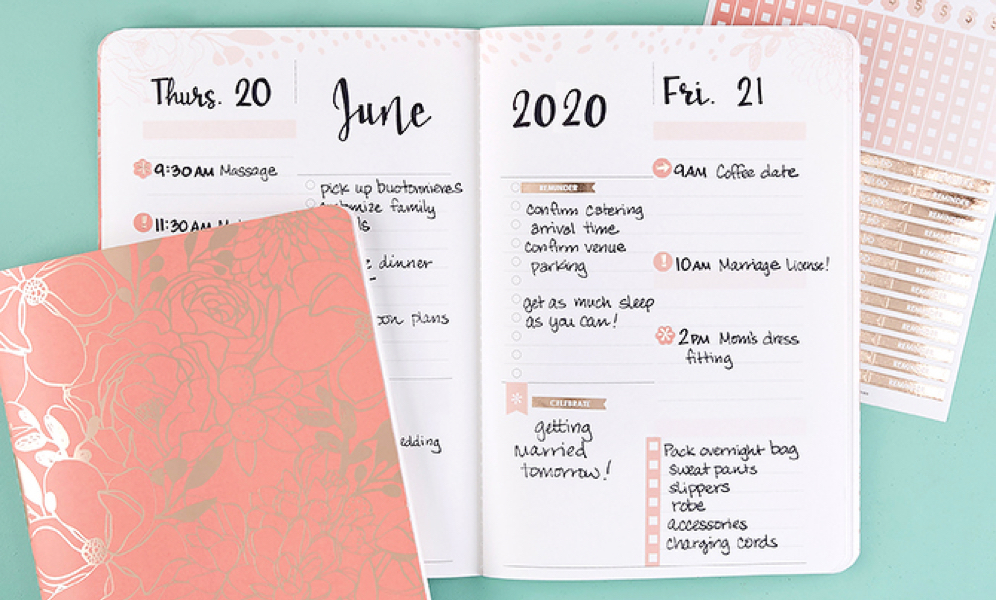 Thurs. 20
June
9:30 AM Massage
11:30 AM
pick up boutonnieres
family
dinner
plans
2020
REMINDER
confirm catering
arrival time
confirm venue
parking
get as much sleep
as you can!
CELEBRATE
getting
married
tomorrow!
Fri. 21
9AM Coffee date
10AM Marriage License!
2PM Mom's dress
fitting
Pack overnight bag
sweatpants
slippers
robe
accessories
charging cords
REMINDER
REMINDER
REMINDER
REMINDER
REMINDER